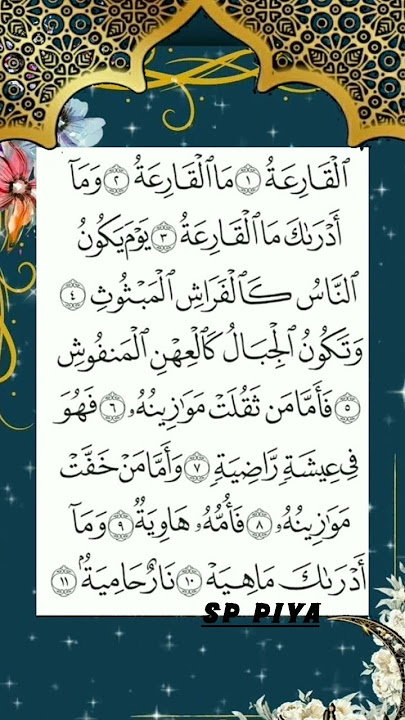 ٱلْقَارِعَةُ ١ مَا ٱلْقَارِعَةُ ٢ وَمَآ
أَدْرَىٰكَ مَا ٱلْقَارِعَةُ ٣ يَوْمَ يَكُونُ
ٱلنَّاسُ كَٱلْفَرَاشِ ٱلْمَبْثُوثِ ٤
وَتَكُونُ ٱلْجِبَالُ كَٱلْعِهْنِ ٱلْمَنفُوشِ
٥ فَأَمَّا مَن ثَقُلَتْ مَوَٰزِينُهُۥ ٦ فَهُوَ
فِى عِيشَةٍ رَّاضِيَةٍ ٧ وَأَمَّا مَنْ خَفَّتْ
مَوَٰزِينُهُۥ ٨ فَأُمُّهُۥ هَاوِيَةٌ ٩ وَمَآ
أَدْرَىٰكَ مَا هِيَهْ ١٠ نَارٌ حَامِيَةٌۢ ١١
SP PIYA